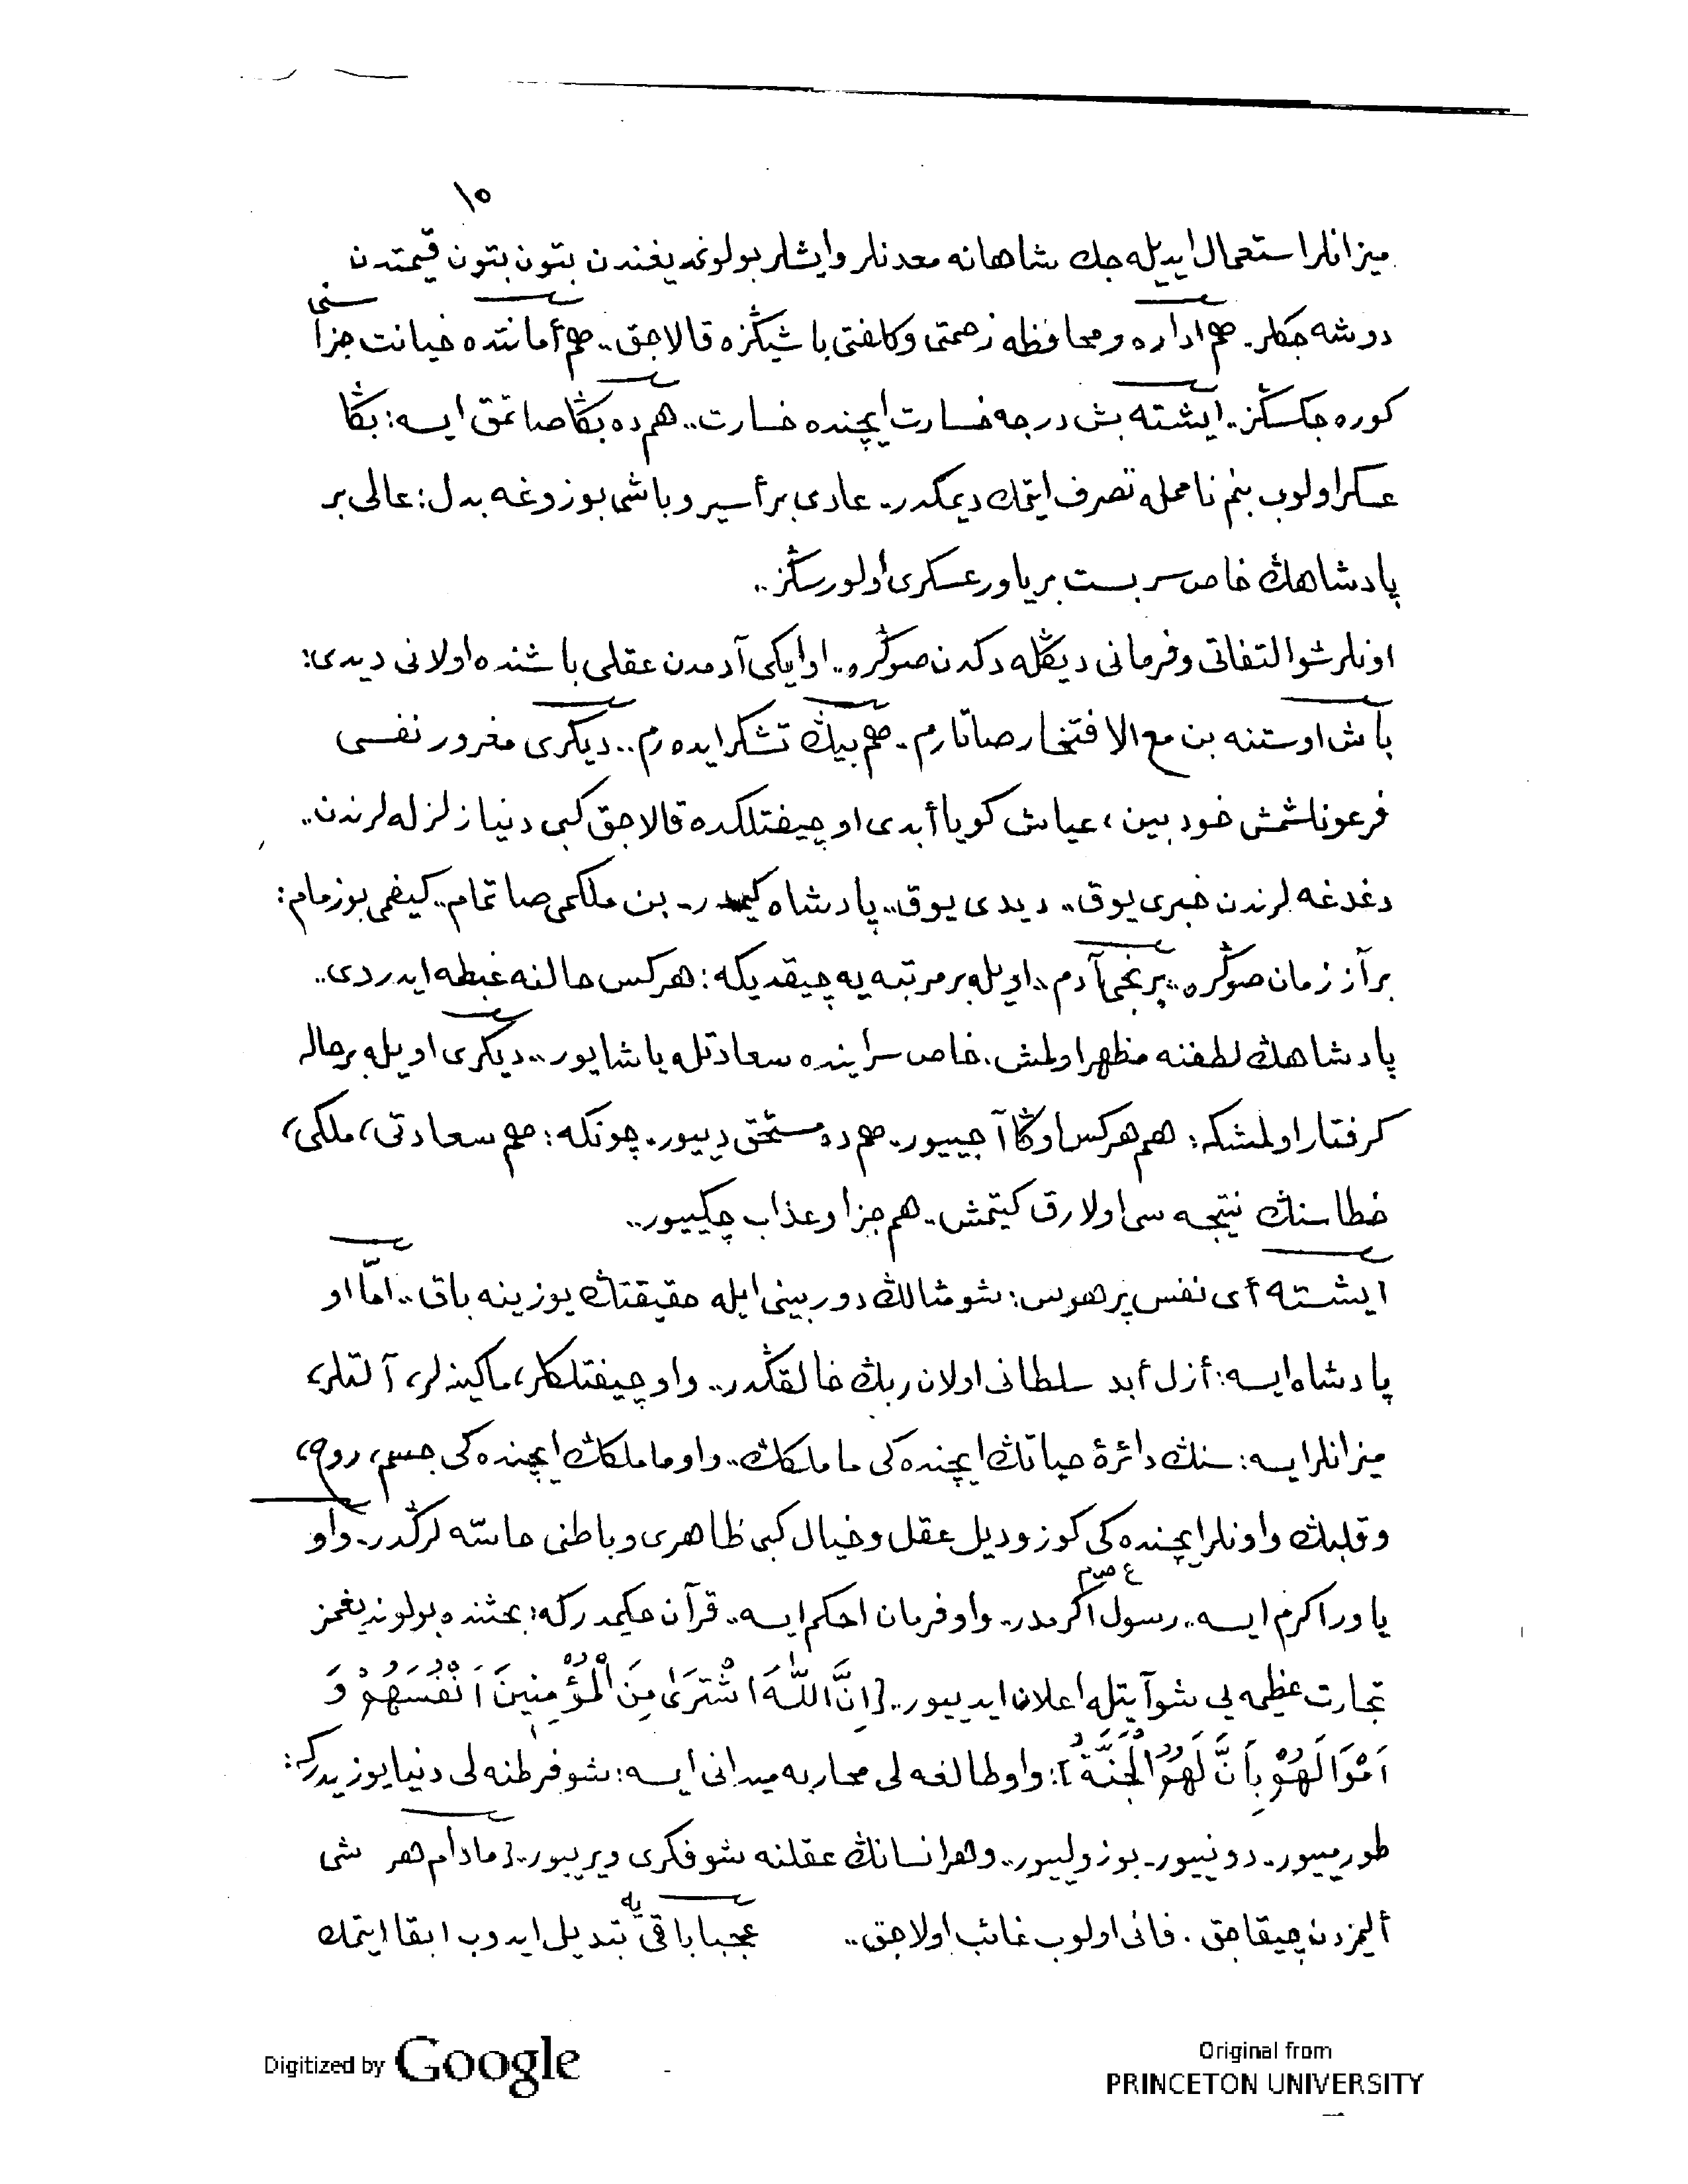 ١٥
ميزانلر استعمال ايديله جك شاهانه معدنلر وايشلر بولونمديغندن بتون بتون قيمتدن
دوشه جكلر. هم اداره ومحافظه زحمتى وكلفتى باشيڭزه قالاجق.. هم أمانتده خيانت جزاسنى
كوره جكسڭز.. ايشته بش درجه خسارت ايچنده خسارت.. هم ده بڭا صاتمق ايسه: بڭا
عسكر اولوب بنم نامله تصرف ايتمك ديمكدر. عادى بر أسير وباشى بوزوغه بدل: عالى بر
پادشاهڭ خاص سربست بر ياور عسكرى اولورسڭز..
اونلر شو التفاتى وفرمانى ديڭله دكدن صوڭره.. او ايكى آدمدن عقلى باشنده اولانى ديدى:
باش اوستنه بن مع الافتخار صاتارم. هم بيڭ تشكر ايده رم.. ديكرى مغرور نفسى
فرعونلشمش خودبين، عياش كويا أبدى او چيفتلكده قالاجق كبى دنيا زلزله لرندن..
دغدغه لرندن خبرى يوق.. ديدى يوق.. پادشاه كيمدر. بن ملكمى صاتمام.. كيفمى بوزمام:
بر آز زمان صوڭره.. برنجى آدم.. اويله بر مرتبه يه چيقديكه: هركس حالنه غبطه ايدردى..
پادشاهڭ لطفنه مظهر اولمش. خاص سراينده سعادتله ياشايور.. ديكرى اويله بر حاله
كرفتار اولمشكه: هم هركس اوڭا آجييور. هم ده مستحق ديييور. چونكه: هم سعادتى، ملكى،
خطاسنڭ نتيجه سى اولارق كيتمش. هم جزا وعذاب چكييور..
ايشته أى نفس پرهوس: شو مثالڭ دوربينى ايله حقيقتڭ يوزينه باق.. امّا او
پادشاه ايسه: أزل أبد سلطانى اولان ربڭ خالقڭدر.. واو چيفتلكلر، ماكينه لر، آلتلر،
ميزانلر ايسه: سنڭ دائرۀ حياتڭ ايچنده كى ماملكڭ.. واو ماملكڭ ايچنده كى جسم، روح،
وقلبڭ واونلر ايچنده كى كوز وديل عقل وخيال كبى ظاهرى وباطنى حاسّه لرڭدر. واو
ياور اكرم ايسه.. رسول اكرمدر.. واو فرمان احكم ايسه.. قرآن حكيمدركه: بحثنده بولونديغمز
تجارت عظيمه يى شو آيتله اعلان ايدييور.. [اِنَّ اللّٰهَ اشْتَرَىٰ مِنَ الْمُؤْمِنِينَ اَنْفُسَهُمْ وَ
اَمْوَالَهُمْ بِاَنَّ لَهُمُ الْجَنَّةَ]: واو طالغه لى محاربه ميدانى ايسه: شو فرطنه لى دنيا يوزيدركه:
طورمييور. دونييور. بوزولييور.. وهر انسانڭ عقلنه شو فكرى ويرييور. [مادام هر شى
أليمزدن چيقاجق. فانى اولوب غائب اولاجق.. عجبا باقى يه تبديل ايدوب ابقا ايتمك
Digitized by Google
Original from
PRINCETON UNIVERSITY